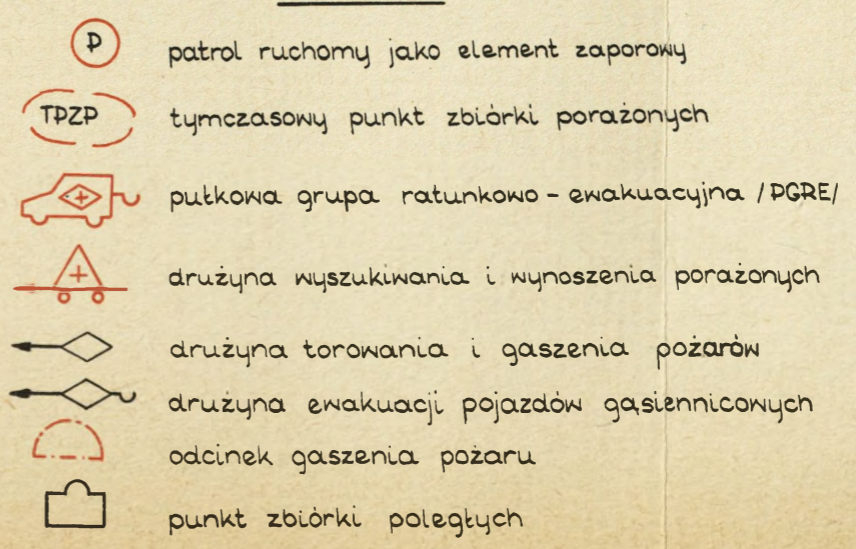 P patrol ruchomy jako element zaporowy
TPZP tymczasowy punkt zbiórki porażonych
pułkowa grupa ratunkowo - ewakuacyjna /PGRE/
drużyna wyszukiwania i wynoszenia porażonych
drużyna torowania i gaszenia pożarów
drużyna ewakuacji pojazdów gąsiennicowych
odcinek gaszenia pożaru
punkt zbiórki poległych